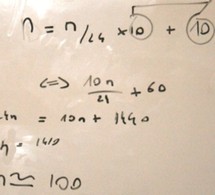 n = n/24 × 10 + 10
(=) 10n/24 + 60
4n = 10n + 1440
= 1440
n ≈ 100